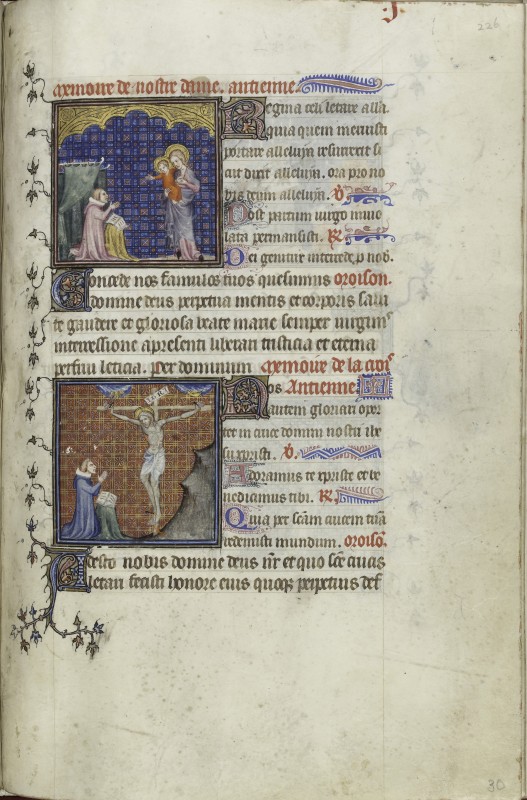 J.
226
Memoire de nostre dame. antienne.
Regina celi letare alla
quia quem meruisti
portare alleluya resurrexit si
cut dixit alleluya. ora pro no
bis deum alleluya. V
Post partum virgo invio
lata permansisti. R
Dei genitrix intercede p nob.
Concede nos famulos tuos quesumus oroison.
domine deus perpetua mentis et corporis salu
te gaudere et gloriosa beate marie semper virginis
intercessione a presenti liberari tristicia et eterna
perfrui leticia. Per dominum Memoire de la crois
Nos Antienne
autem gloriari opor
tet in cruce domini nostri ihe
su xpristi. V.
Adoramus te xpriste et be
nedicimus tibi. R.
Quia per scam crucem tuã
redemisti mundum. oroisõ.
Adesto nobis domine deus nr et quos sce crucis
letari fecisti honore eius quoque perpetuis def
30